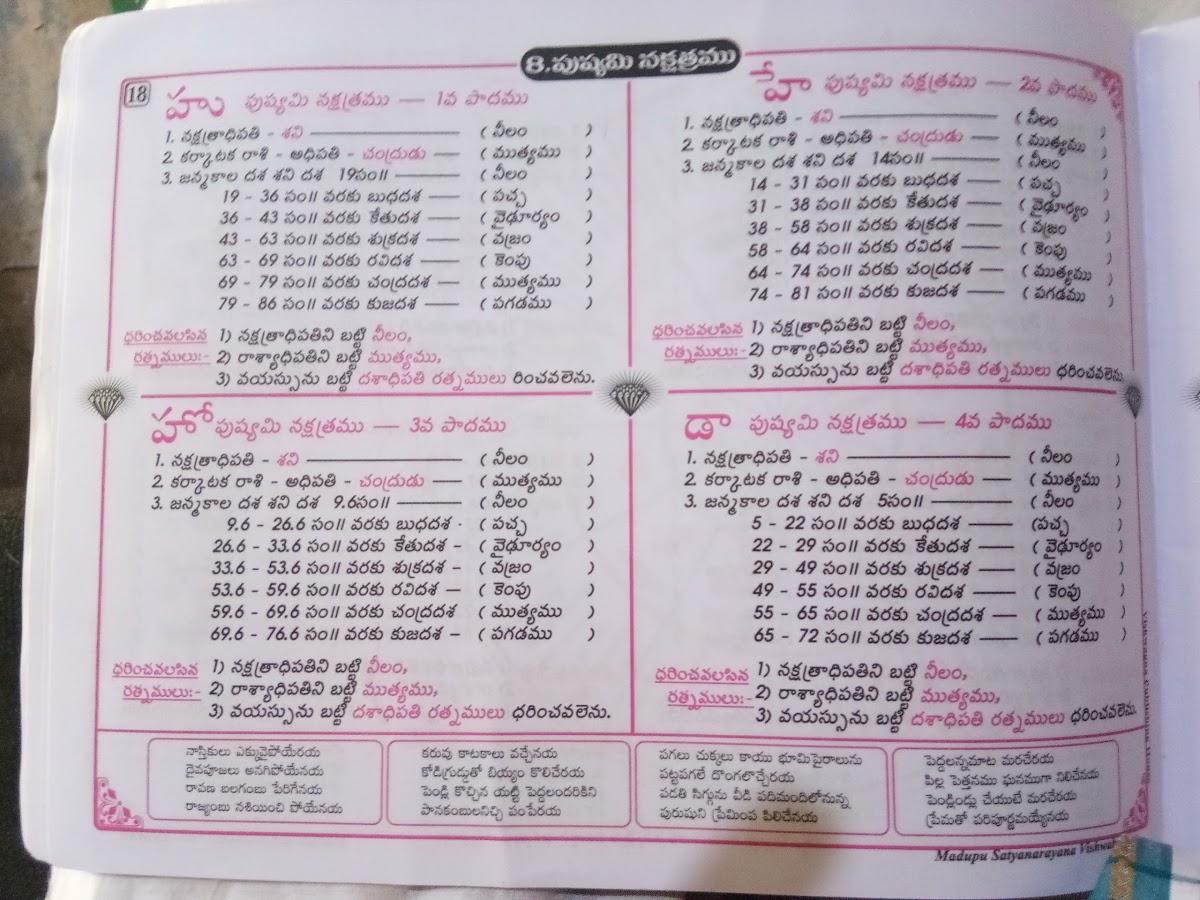 8.పుష్యమి నక్షత్రము
18
హు పుష్యమి నక్షత్రము — 1వ పాదము
1. నక్షత్రాధిపతి - శని ——— ( నీలం )
2. కర్కాటక రాశి - అధిపతి - చంద్రుడు — ( ముత్యము )
3. జన్మకాల దశ శని దశ 19సం॥ — ( నీలం )
19 - 36 సం॥ వరకు బుధదశ — ( పచ్చ )
36 - 43 సం॥ వరకు కేతుదశ — ( వైఢూర్యం )
43 - 63 సం॥ వరకు శుక్రదశ — ( వజ్రం )
63 - 69 సం॥ వరకు రవిదశ — ( కెంపు )
69 - 79 సం॥ వరకు చంద్రదశ — ( ముత్యము )
79 - 86 సం॥ వరకు కుజదశ — ( పగడము )
ధరించవలసిన 1) నక్షత్రాధిపతిని బట్టి నీలం,
రత్నములు:- 2) రాశ్యాధిపతిని బట్టి ముత్యము,
3) వయస్సును బట్టి దశాధిపతి రత్నములు రించవలెను.
హే పుష్యమి నక్షత్రము — 2వ పాదము
1. నక్షత్రాధిపతి - శని ——— ( నీలం )
2. కర్కాటక రాశి - అధిపతి - చంద్రుడు — ( ముత్యము )
3. జన్మకాల దశ శని దశ 14సం॥ — ( నీలం )
14 - 31 సం॥ వరకు బుధదశ — ( పచ్చ )
31 - 38 సం॥ వరకు కేతుదశ — ( వైఢూర్యం )
38 - 58 సం॥ వరకు శుక్రదశ — ( వజ్రం )
58 - 64 సం॥ వరకు రవిదశ — ( కెంపు )
64 - 74 సం॥ వరకు చంద్రదశ — ( ముత్యము )
74 - 81 సం॥ వరకు కుజదశ — ( పగడము )
ధరించవలసిన 1) నక్షత్రాధిపతిని బట్టి నీలం,
రత్నములు:- 2) రాశ్యాధిపతిని బట్టి ముత్యము,
3) వయస్సును బట్టి దశాధిపతి రత్నములు ధరించవలెను.
హో పుష్యమి నక్షత్రము — 3వ పాదము
1. నక్షత్రాధిపతి - శని ——— ( నీలం )
2. కర్కాటక రాశి - అధిపతి - చంద్రుడు — ( ముత్యము )
3. జన్మకాల దశ శని దశ 9.6సం॥ — ( నీలం )
9.6 - 26.6 సం॥ వరకు బుధదశ - ( పచ్చ )
26.6 - 33.6 సం॥ వరకు కేతుదశ – ( వైఢూర్యం )
33.6 - 53.6 సం॥ వరకు శుక్రదశ – ( వజ్రం )
53.6 - 59.6 సం॥ వరకు రవిదశ — ( కెంపు )
59.6 - 69.6 సం॥ వరకు చంద్రదశ ( ముత్యము )
69.6 - 76.6 సం॥ వరకు కుజదశ – ( పగడము )
ధరించవలసిన 1) నక్షత్రాధిపతిని బట్టి నీలం,
రత్నములు:- 2) రాశ్యాధిపతిని బట్టి ముత్యము,
3) వయస్సును బట్టి దశాధిపతి రత్నములు ధరించవలెను.
డా పుష్యమి నక్షత్రము — 4వ పాదము
1. నక్షత్రాధిపతి - శని ——— ( నీలం )
2. కర్కాటక రాశి - అధిపతి - చంద్రుడు — ( ముత్యము )
3. జన్మకాల దశ శని దశ 5సం॥ — ( నీలం )
5 - 22 సం॥ వరకు బుధదశ — (పచ్చ )
22 - 29 సం॥ వరకు కేతుదశ — ( వైఢూర్యం )
29 - 49 సం॥ వరకు శుక్రదశ — ( వజ్రం )
49 - 55 సం॥ వరకు రవిదశ — ( కెంపు )
55 - 65 సం॥ వరకు చంద్రదశ — ( ముత్యము )
65 - 72 సం॥ వరకు కుజదశ — ( పగడము )
ధరించవలసిన 1) నక్షత్రాధిపతిని బట్టి నీలం,
రత్నములు:- 2) రాశ్యాధిపతిని బట్టి ముత్యము,
3) వయస్సును బట్టి దశాధిపతి రత్నములు ధరించవలెను.
నాస్తికులు ఎక్కువైపోయేరయ
దైవపూజలు అనగిపోయేనయ
రావణ బలగంబు పేరిగేనయ
రాజ్యంబు నశియించి పోయేనయ
కరువు కాటకాలు వచ్చేనయ
కోడిగ్రుడ్డుతో బియ్యం కొలిచేరయ
పెండ్లి కొచ్చిన యట్టి పెద్దలందరికిని
పానకంబులనిచ్చి పంపేరయ
పగలు చుక్కలు కాయు భూమిపైరాలును
పట్టపగలే దొంగలొచ్చేరయ
పడతి సిగ్గును వీడి పదిమందిలోనున్న
పురుషుని ప్రేమింప పిలిచేనయ
పెద్దలన్నమాట మరచేరయ
పిల్ల పెత్తనము ఘనముగా నిలిచేనయ
పెండ్లిండ్లు చేయుటే మరచేరయ
ప్రేమతో పరిపూర్ణమయ్యేనయ
Madupu Satyanarayana